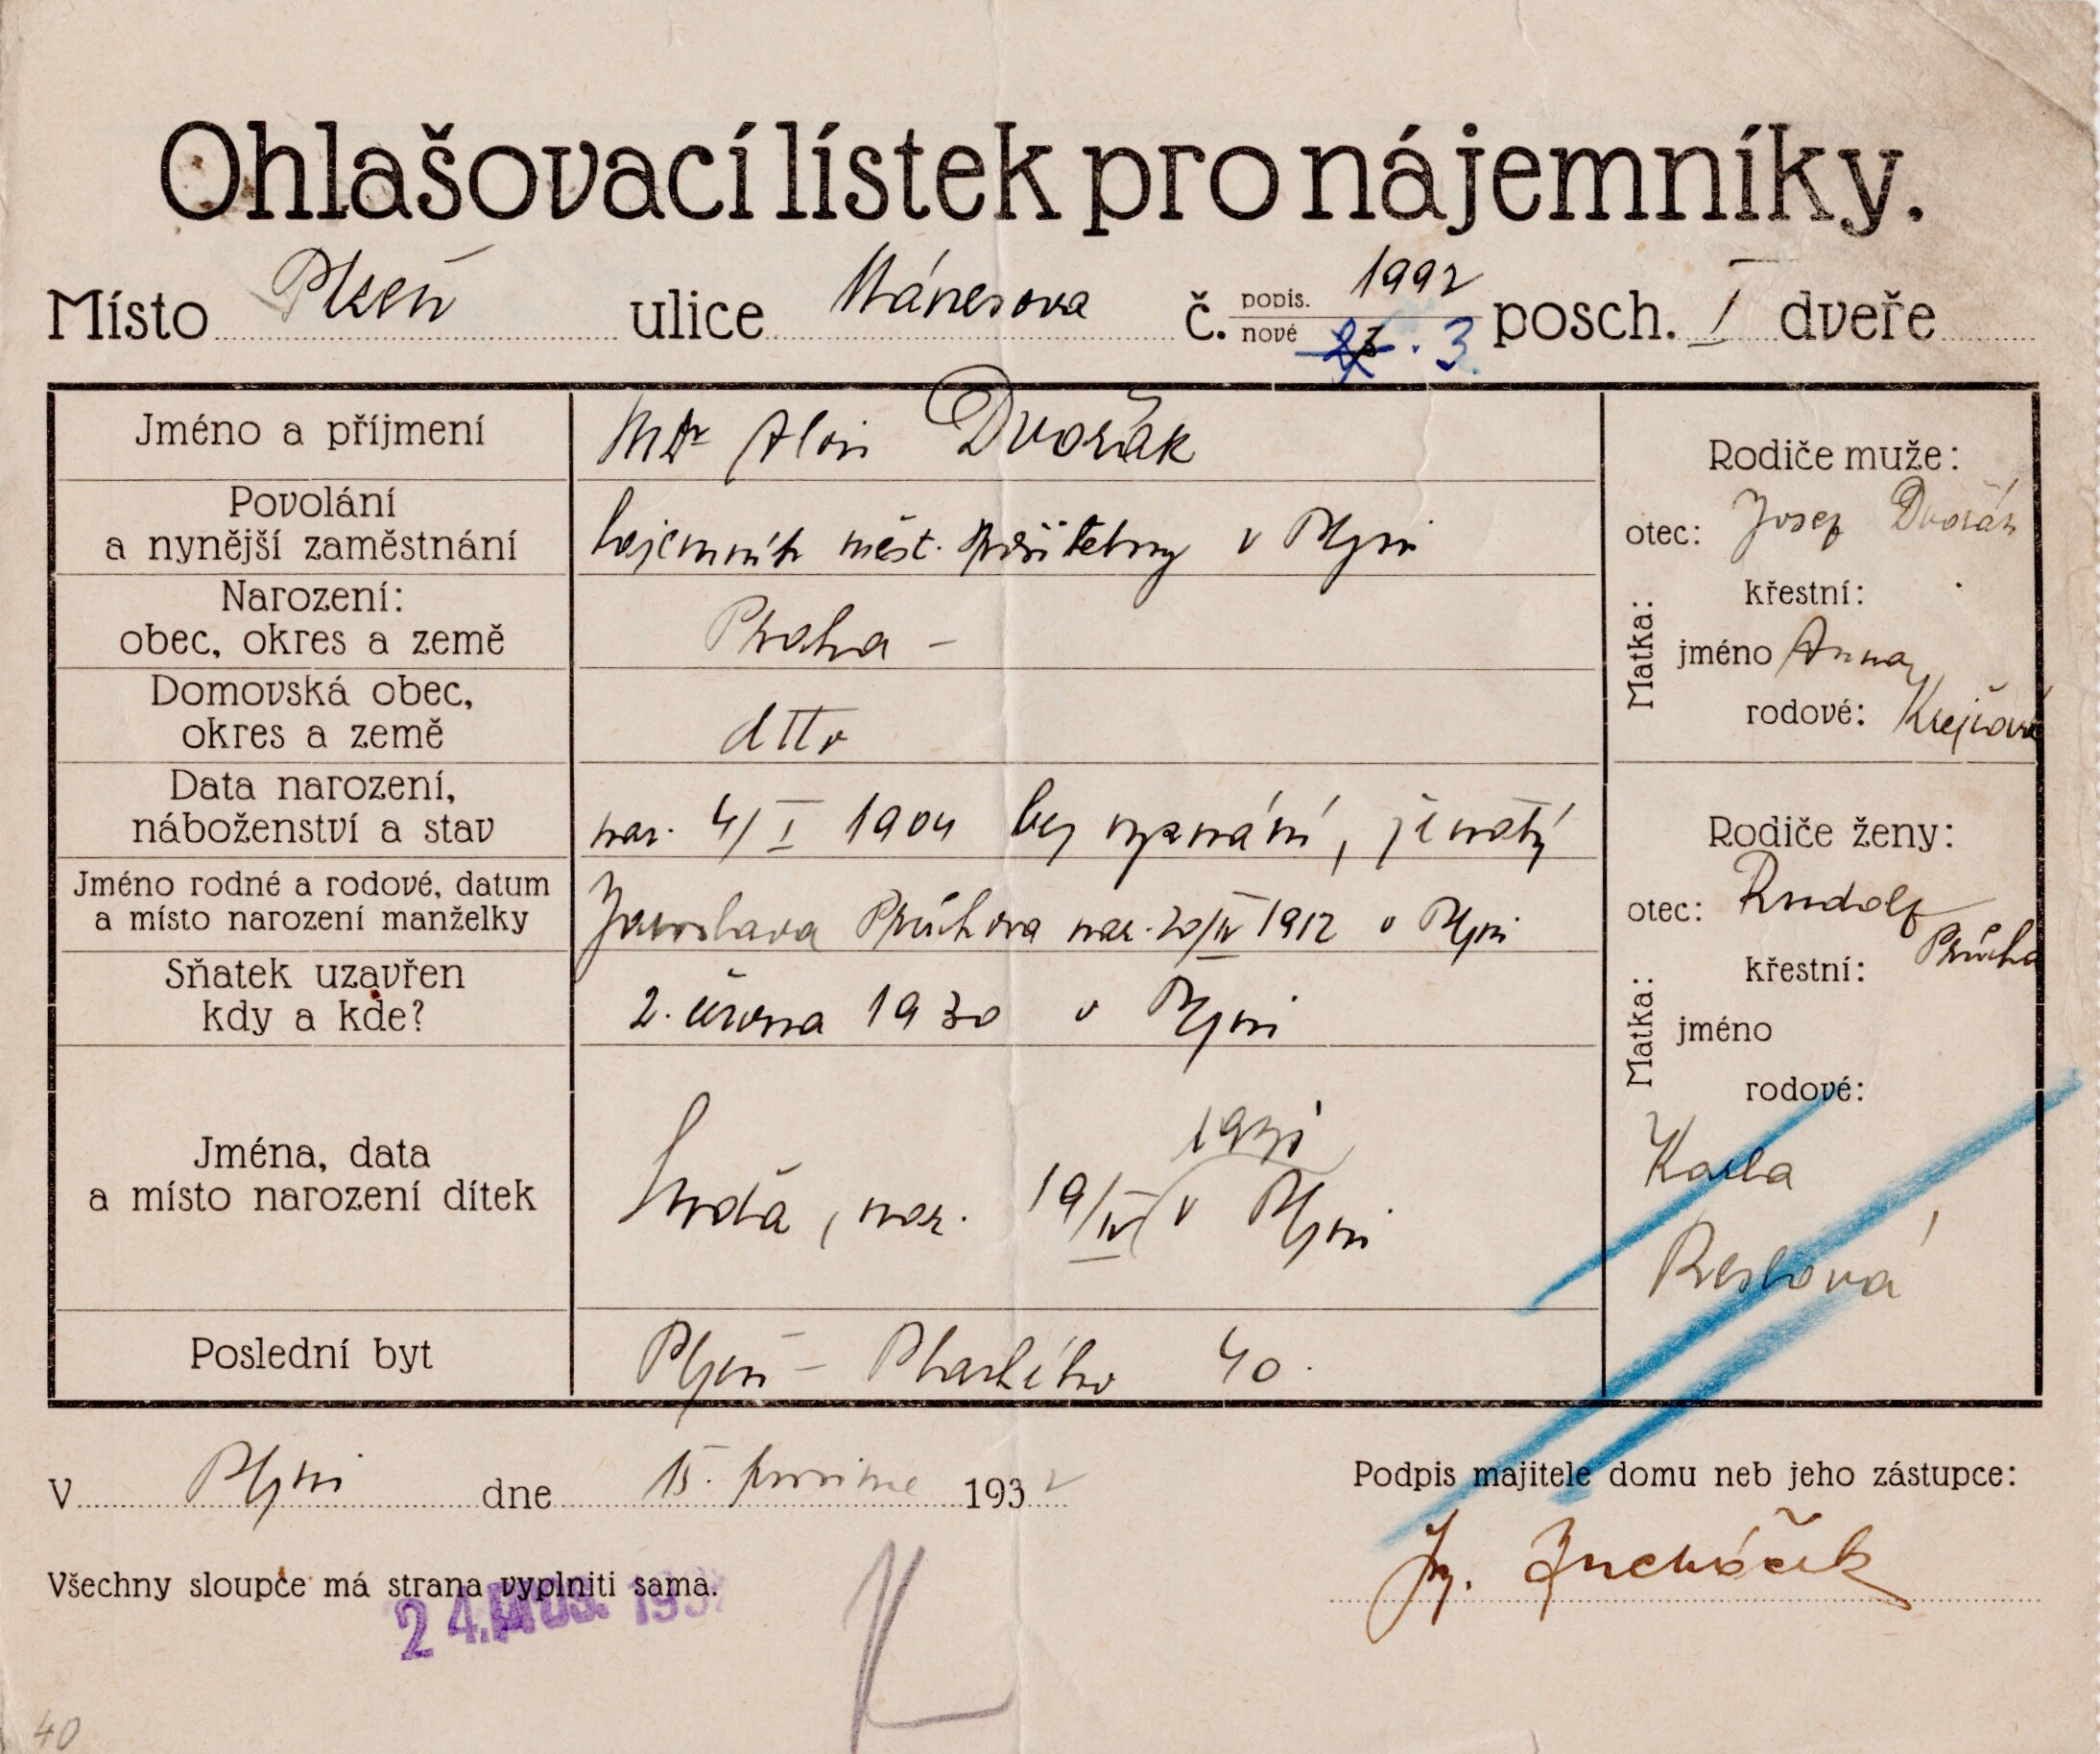 Ohlašovací lístek pro nájemníky.
Místo Plzeň ulice Mánesova č. popis. 1992 nové 3 posch. I dveře
Jméno a příjmení
Alois Dvořák
Povolání
a nynější zaměstnání
tajemník měst. pojišťovny v Plzni
Narození:
obec, okres a země
Praha -
Domovská obec,
okres a země
dtto
Data narození,
náboženství a stav
nar. 4/I 1904 bez vyznání, ženatý
Jméno rodné a rodové, datum
a místo narození manželky
Jaroslava Průchova nar. 20/IV 1912 v Plzni
Sňatek uzavřen
kdy a kde?
2. června 1930 v Plzni
Jména, data
a místo narození dítek
1931
, nar. 19/IV v Plzni
Poslední byt
Plzeň - Plachého 40.
Rodiče muže:
otec: Josef Dvořák
Matka:
křestní:
jméno Anna
rodové: Krejčová
Rodiče ženy:
otec: Rudolf
Průcha
Matka:
křestní:
jméno
rodové:
Karla
Reslová
V Plzni dne 15. prosince 1932
Podpis majitele domu neb jeho zástupce:
Ing.
Všechny sloupce má strana vyplniti sama.
24. PROS. 1932
40